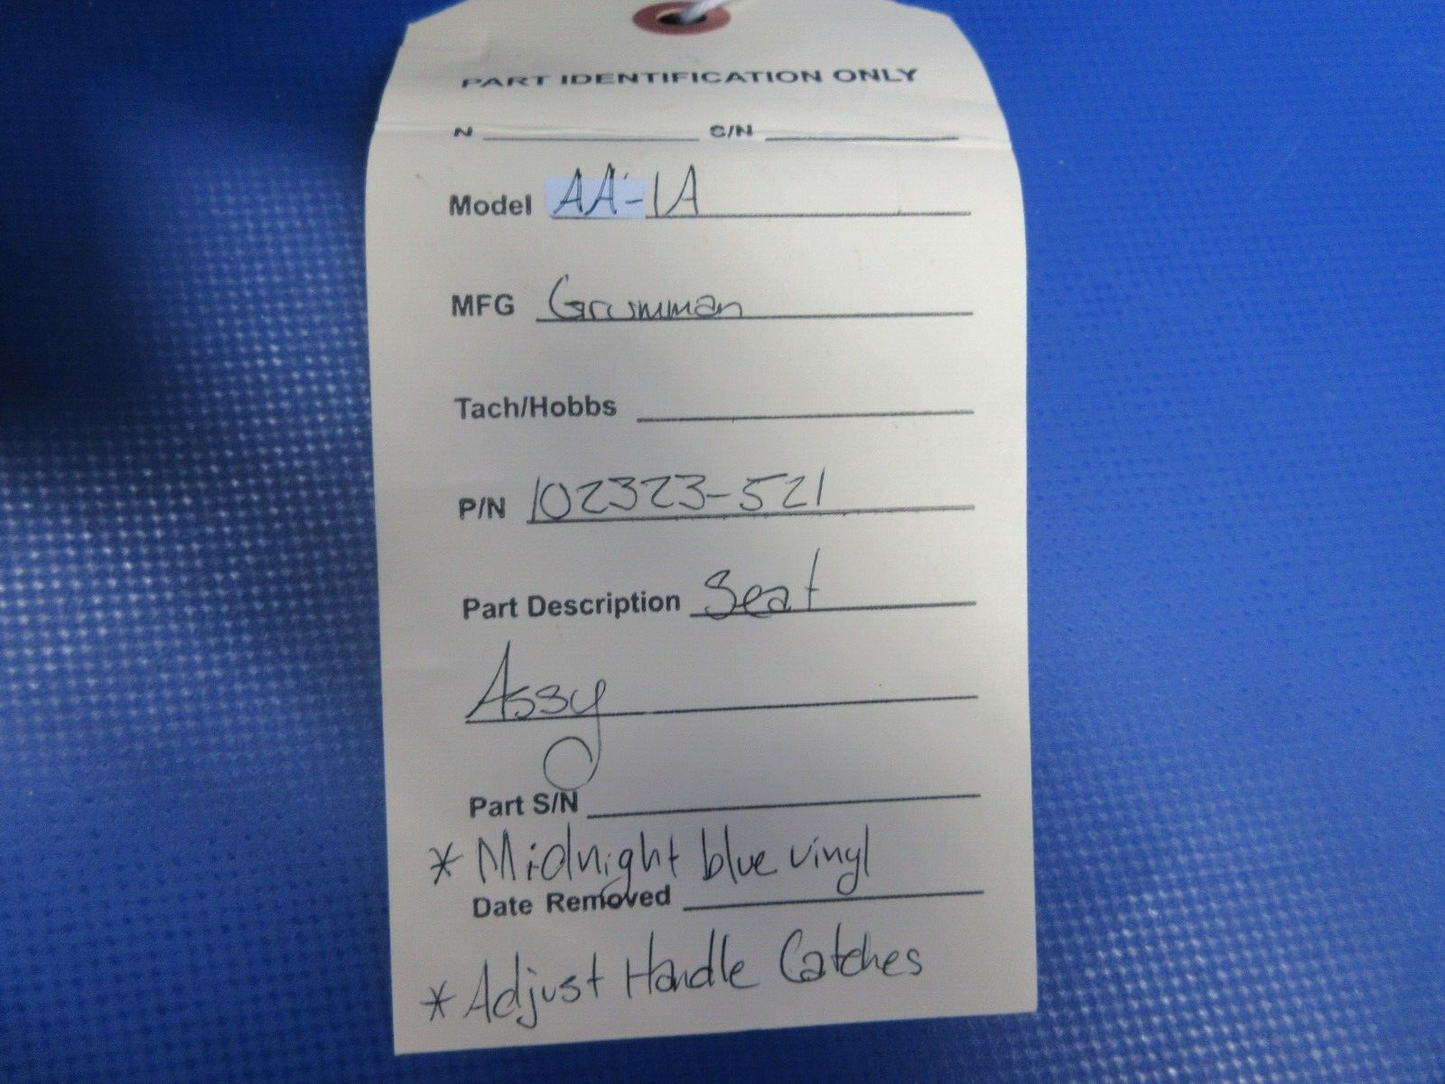 PART IDENTIFICATION ONLY
N S/N
Model AA-1A
MFG Grumman
Tach/Hobbs
P/N 102323-521
Part Description Seat
Assy
Part S/N
* Midnight blue vinyl
Date Removed
* Adjust Handle Catches